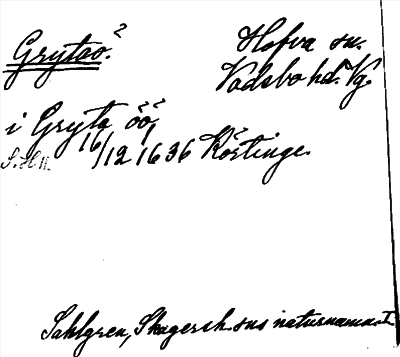 Grytaö.?
Hofva sn.
Vadsbo hd. Vg.
i Gryta öö
16/12 1636 Köstinge.
Sahlgren, Skagersh. sns naturnamn I